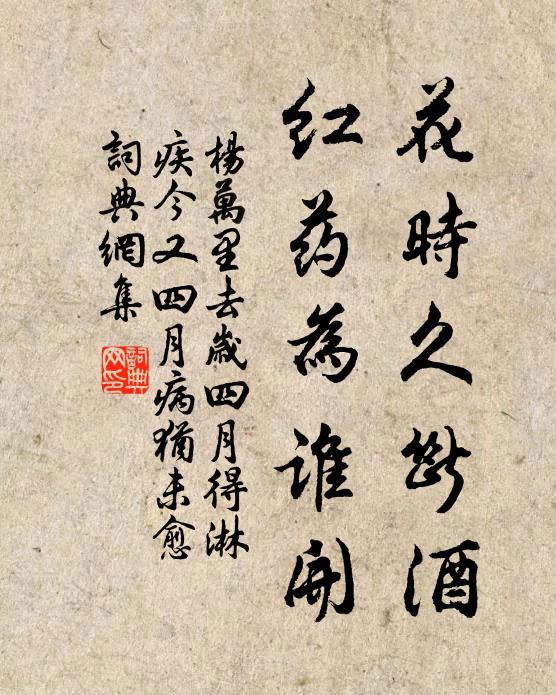 花時久斷酒
红药為誰開
楊萬里去歲四月得淋
疾今又四月病猶未愈
詞典網集
詞典网印